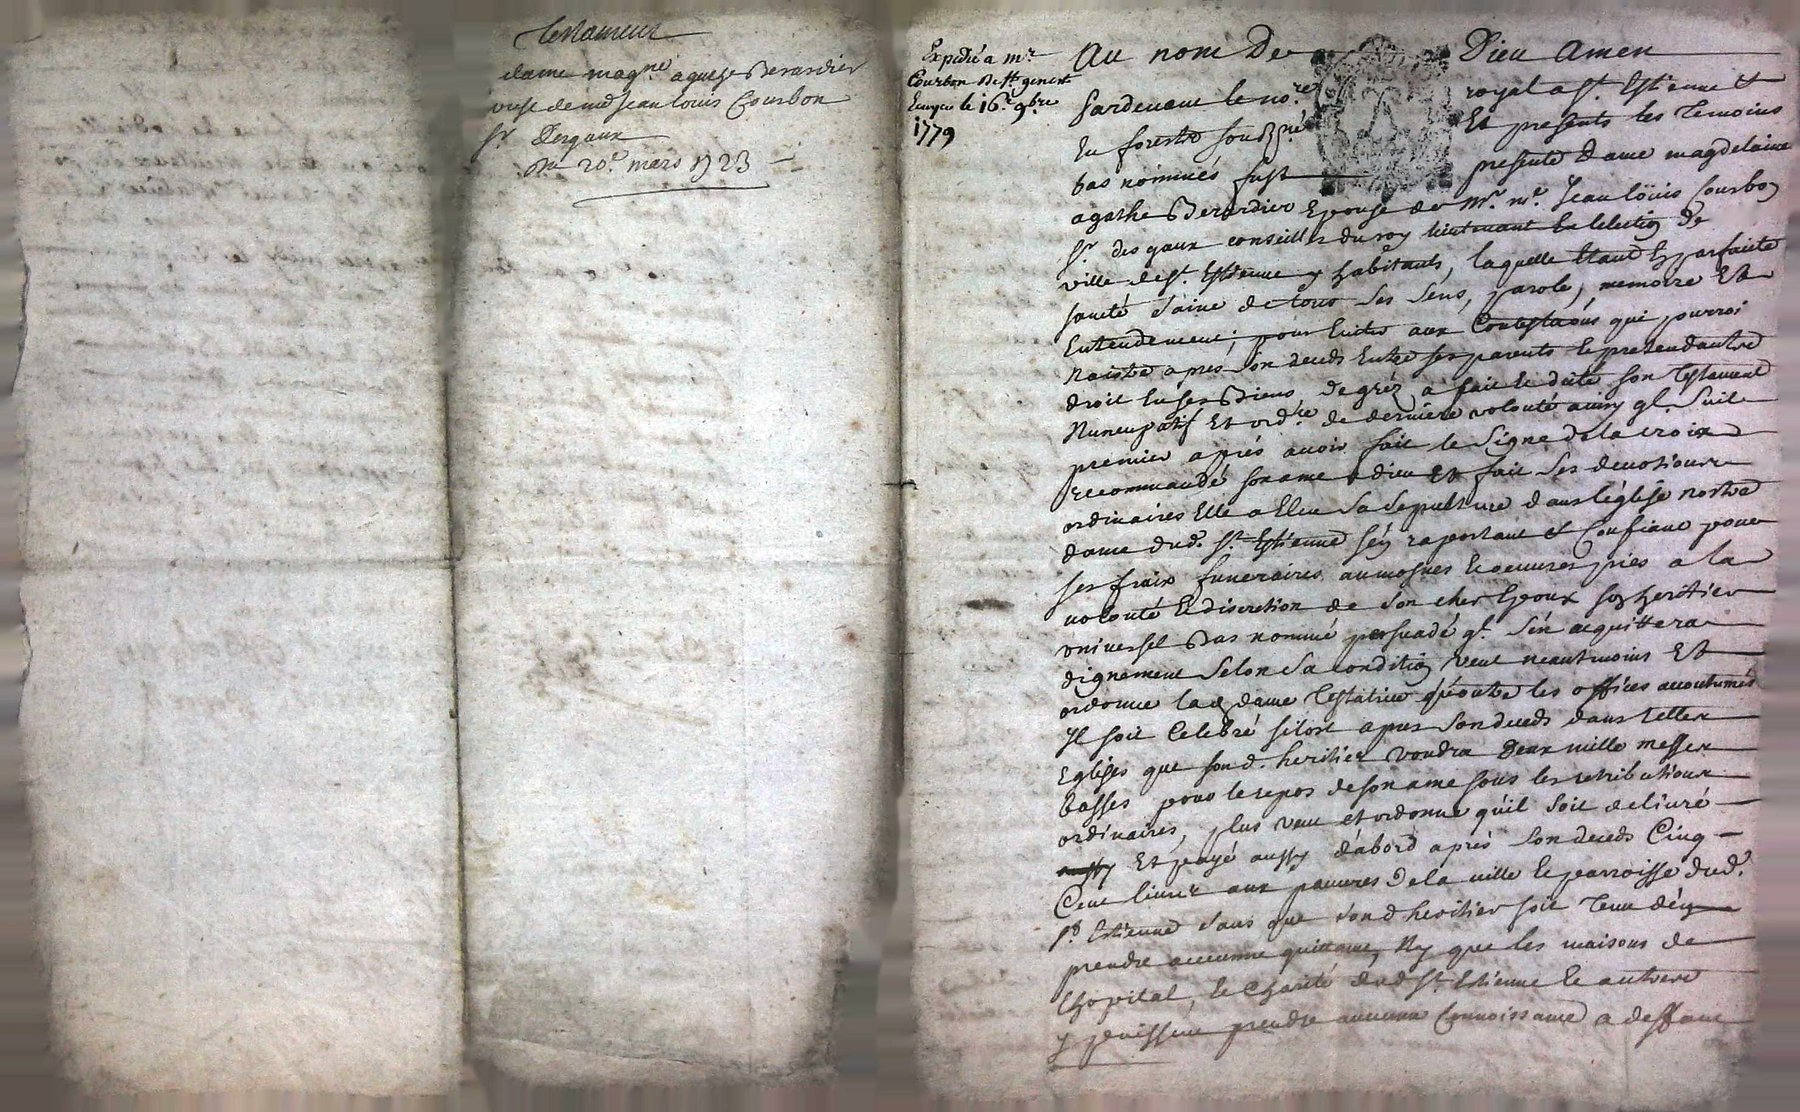 Testament
dame magne agathe Berardier
de md Jean louis Courbon
Sr Desgaux
Du 20e mars 1723
Expedié a mr
Courbon de St genest
le 16e 9bre
1779
Au nom De Dieu Amen
Pardevant le nore royal a St Estienne Et
En forestz souszné Et presents les Temoins
bas nommés fust presente Dame magdelaine
agathe Berardier Epouse de Mr. mr. Jean loüis Courbon
Sr. des gaux conseiller du roy lieutenant En lelection de
ville de St. Estienne y habitants, laquelle Etant En parfaite
santé saine de tous ses sens, parole, memoire Et
Entendement; pour Euiter aux Contestaõns qui pourroi
naistre apres son deceds Entre ses parents Et pretendantz
droit En ses Biens de gréz a fait Et dicté son Testament
Nuncupatif Et ordre de derniere volonté ainsy qt. suit
premier aprés auoir fait le Signe de la croix
recommandé son ame a dieu Et fait ses deuotions
ordinaires Elle a Eleu sa sepulture dans léglise nostre
dame dud. St. Estienne sén raportant et Confiant pour
ses fraix funeraires aumosnes Et oeuures pies a la
uolonté Et discretion de son cher Epoux son heritier
vniuersel Bas nommé persuadé qt. sén acquittera
dignement selon sa condition veut neantmoins Et
ordonne lad dame Testatrice qúoutre les offices accoutumés
Il soit Celebré sitost apres son deceds dans telles
Eglises que sond. heritier voudra Deux mille messes
basses pour le repos de son ame sous les retributions
ordinaires, plus veut et ordonne qúil soit deliuré
Et payé aussy dábord aprés son deceds Cinq
Cent liures aux pauures de la uille Et parroisse dud.
St Estienne sans que sond heritier soit tenu dén
prendre aucunne quittance, Ny que les maisons de
lhopital, Et Charité dud St Estienne Et autres
y puissent prendre aucune Connoissance a deffaut